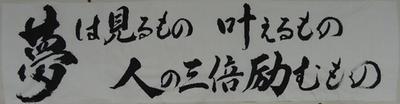 夢は見るもの 叶えるもの
人の三倍励むもの